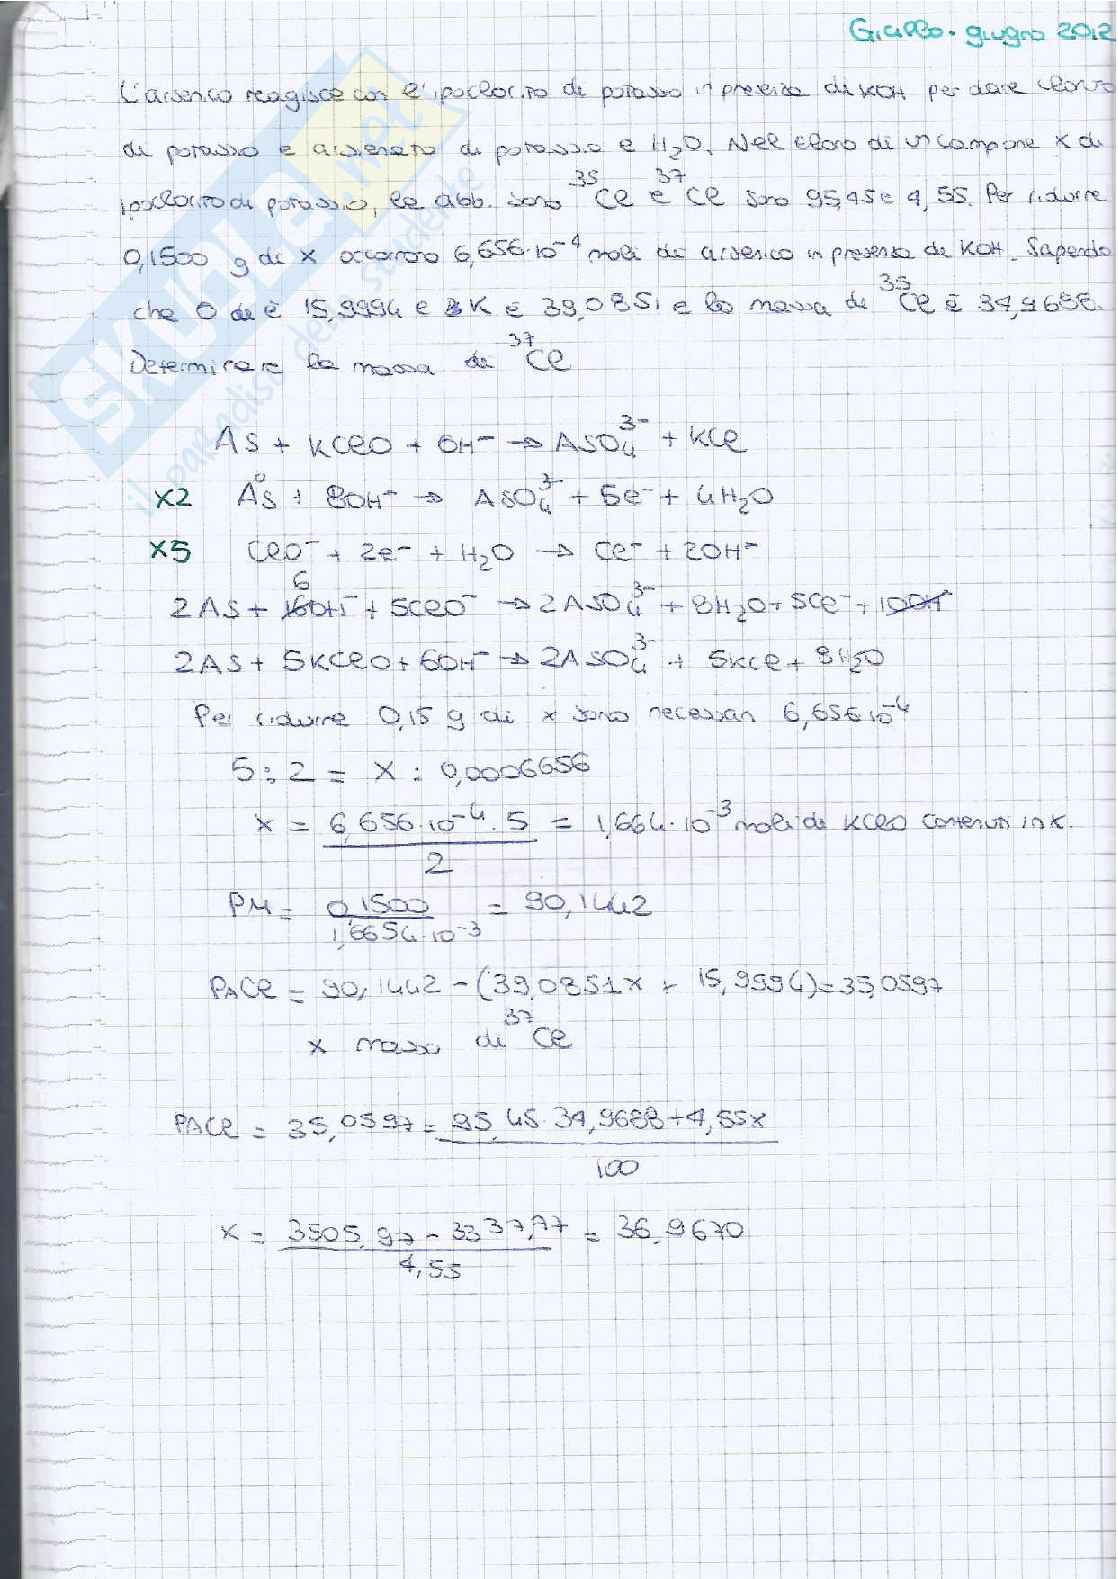 Giallo - giugno 2012
L'arsenico reagisce con l'ipoclorito di potassio in presenza di KOH per dare cloruro
di potassio e arseniato di potassio e H2O. Nel cloro di un campione X di
ipoclorito di potassio, le abb. sono 35Cl e 37Cl sono 95,45 e 4,55. Per ridurre
0,1500 g di X occorrono 6,656·10-4 moli di arsenico in presenza di KOH. Sapendo
che O è 15,9994 e K è 39,0851 e la massa di 35Cl è 34,9688.
Determinare la massa di 37Cl
As + KClO + OH- → AsO4 3- + KCl
x2 As0 + 8OH- → AsO4 3- + 5e- + 4H2O
x5 ClO- + 2e- + H2O → Cl- + 2OH-
6
2As + 16OH- + 5ClO- → 2AsO4 3- + 8H2O + 5Cl- + 10OH-
2As + 5KClO + 6OH- → 2AsO4 3- + 5KCl + 3H2O
Per ridurre 0,15 g di x sono necessari 6,656·10-4
5 : 2 = x : 0,0006656
x = 6,656·10-4·5 / 2 = 1,664·10-3 moli di KClO contenuti in X.
PM = 0,1500 / 1,6654·10-3 = 90,1442
PACl = 90,1442 - (39,0851x + 15,9994) = 35,0597
x massa di 37Cl
PACl = 35,0597 = 95,45·34,9688 + 4,55x / 100
x = 3505,97 - 3337,77 / 4,55 = 36,9670
SKUOLA.net
il paradiso dello studente